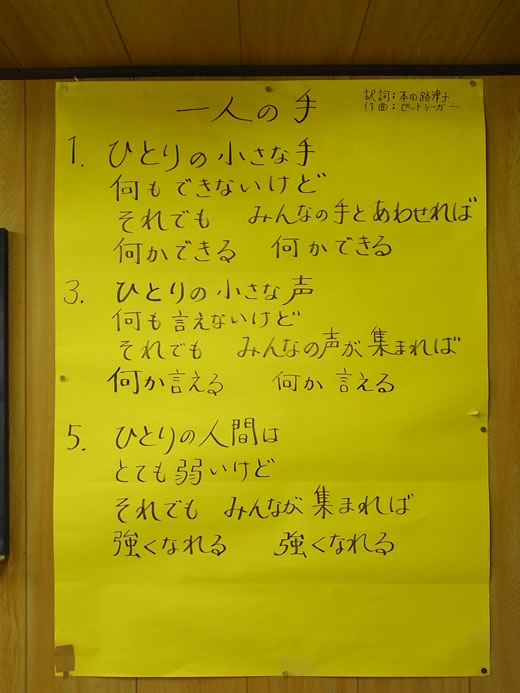 一人の手
訳詞：本田路津子
作曲：ピートシーガー
1. ひとりの小さな手
何もできないけど
それでも みんなの手とあわせれば
何かできる 何かできる
3. ひとりの小さな声
何も言えないけど
それでも みんなの声が集まれば
何か言える 何か言える
5. ひとりの人間は
とても弱いけど
それでも みんなが集まれば
強くなれる 強くなれる